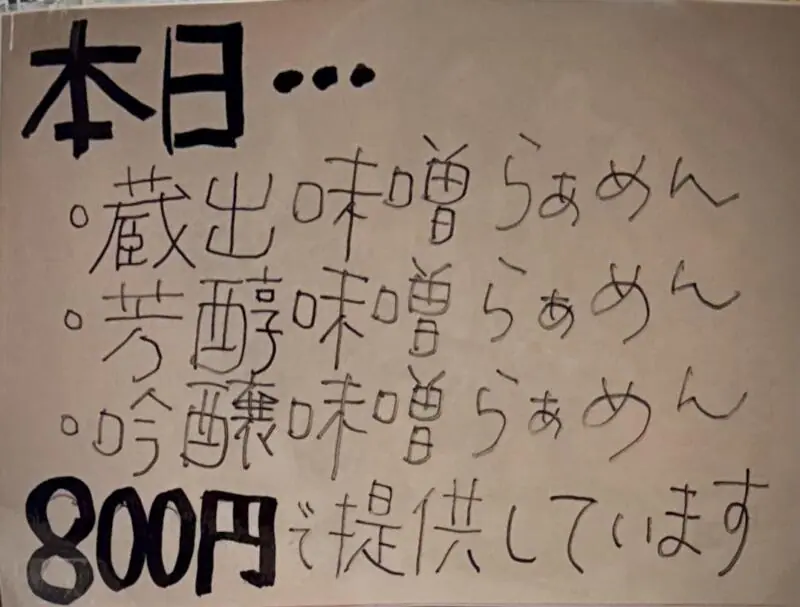 本日…
○蔵出味噌らぁめん
○芳醇味噌らぁめん
○吟醸味噌らぁめん
800円で提供しています